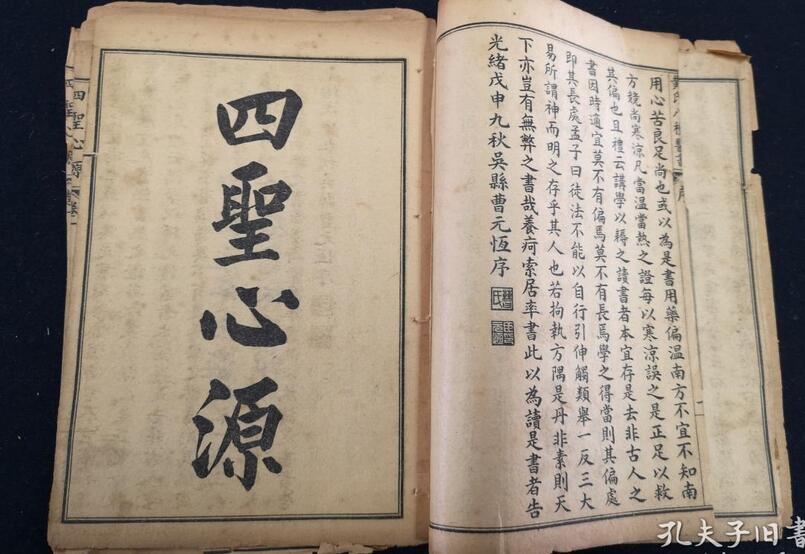 用心苦良足尚也或以為是書用藥偏温南方不宜不知南
方競尚寒涼凡當温當熱之證每以寒涼誤之是正足以救
其偏也且禮云講學以耨之讀書者本宜存是去非古人之
書因時適宜莫不有偏焉莫不有長焉學之得當則其偏處
即其長處孟子曰徒法不能以自行引伸觸類舉一反三大
易所謂神而明之存乎其人也若拘執方隅是丹非素則天
下亦豈有無弊之書哉養疴索居率書此以為讀是書者告
光緒戊申九秋吳縣曹元恆序
四聖心源
四聖心源
孔夫子旧書